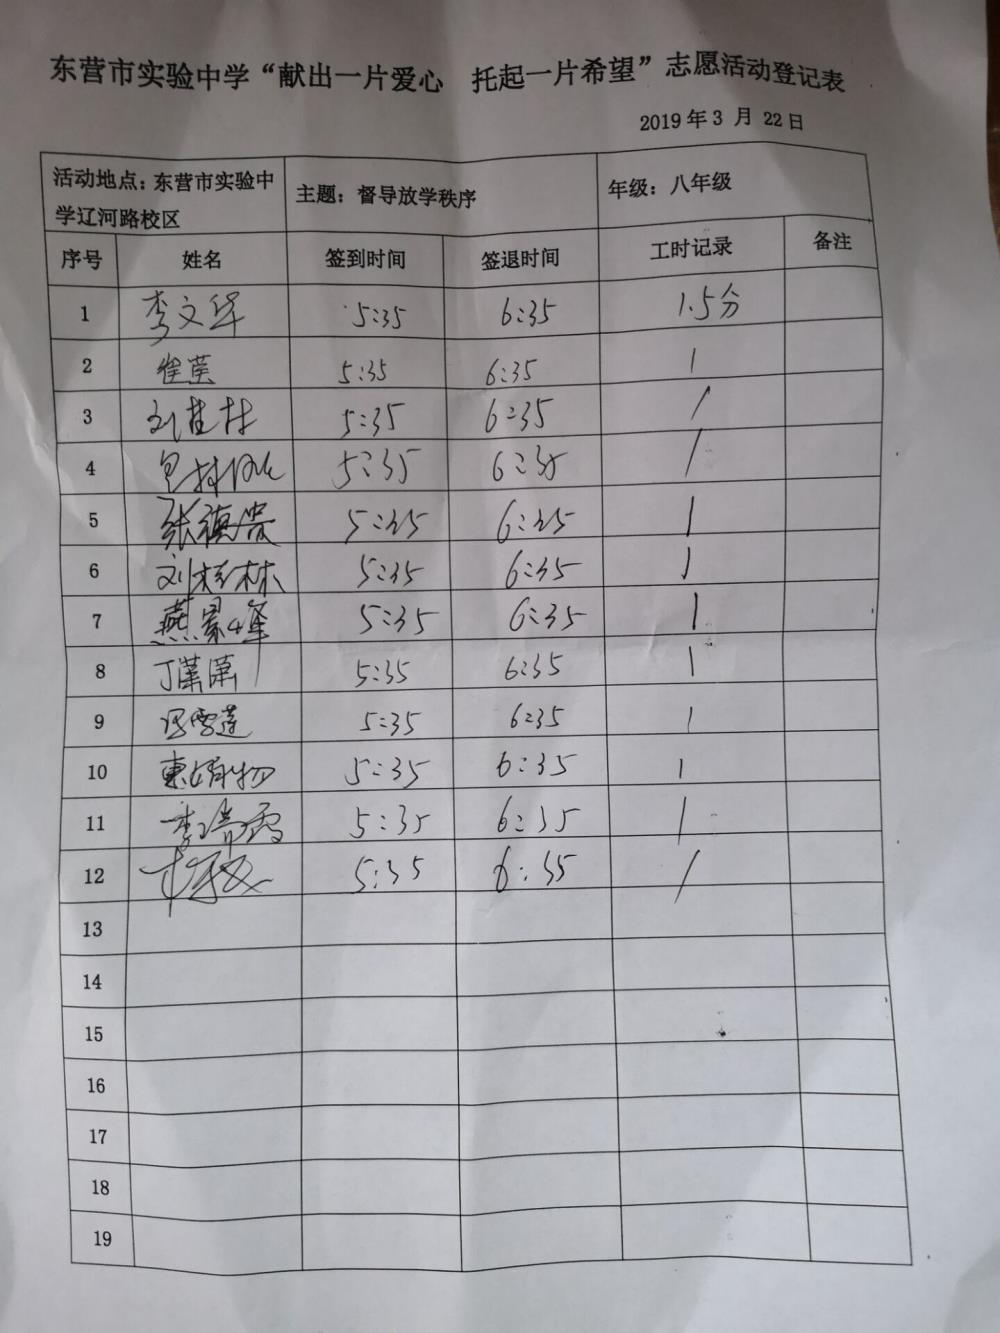 东营市实验中学“献出一片爱心 托起一片希望”志愿活动登记表
2019 年 3 月 22 日
活动地点：东营市实验中学辽河路校区 主题：督导放学秩序 年级：八年级
序号 姓名 签到时间 签退时间 工时记录 备注
1 李文华 5:35 6:35 1.5分
2 崔英 5:35 6:35 1
3 刘桂林 5:35 6:35 1
4 5:35 6:35 1
5 张德贵 5:35 6:35 1
6 刘桂林 5:35 6:35 1
7 燕景峰 5:35 6:35 1
8 丁潇潇 5:35 6:35 1
9 冯雪莲 5:35 6:35 1
10 5:35 6:35 1
11 李瑞霞 5:35 6:35 1
12 5:35 6:35 1
13
14
15
16
17
18
19